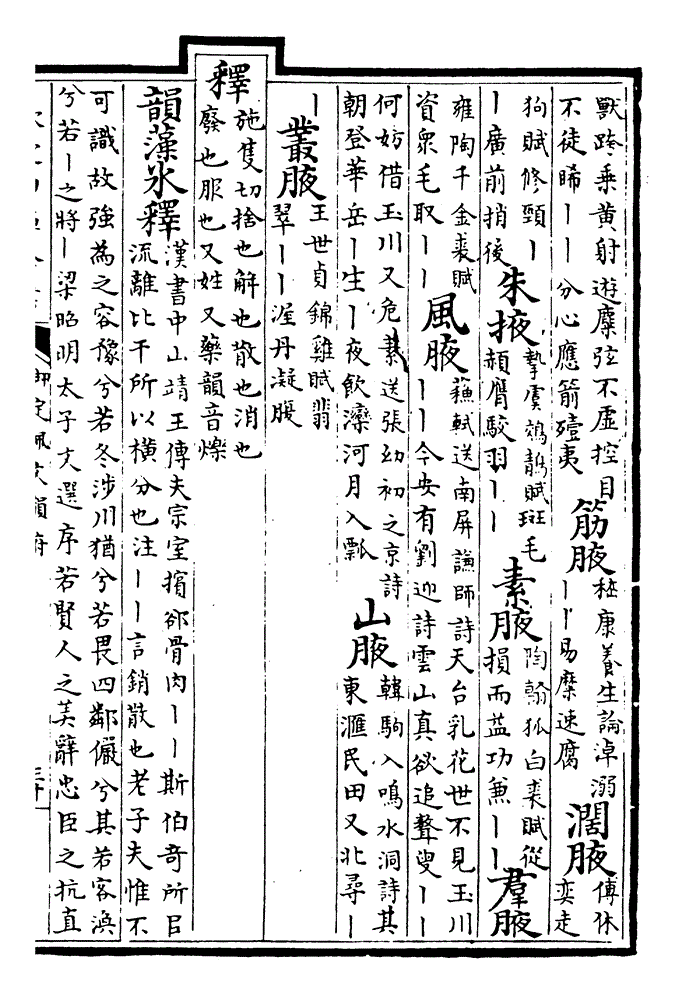 獸跨乗黄射遊麋弦不虛控目
不徒睎丨丨分心應箭殪夷
筋腋
嵇康養生論淖溺
丨丨易糜速腐
濶腋
傅休
奕走
狗賦修頸丨
丨廣前捎後
朱掖
摯虞鵁鶄賦斑毛
頳膺駮羽丨丨
素腋
陶翰狐白裘賦從
損而益功兼丨丨
羣腋
雍陶千金裘賦
資衆毛取丨丨
風腋
蘓軾送南屏謙師詩天台乳花世不見玉川
丨丨今安有劉迎詩雲山真欲追聱叟丨丨
何妨借玉川又危素送張幼初之京詩
朝登華岳丨生丨夜飲灤河月入瓢
山腋
韓駒入鳴水洞詩其
東滙民田又北尋丨
丨
叢腋
王世貞錦雞賦翡
翠丨丨渥丹凝腹
釋
施隻切捨也解也散也消也
廢也服也又姓又藥韻音爍
韻藻氷釋
漢書中山靖王傳夫宗室擯郤骨肉丨丨斯伯竒所㠯
流離比干所以横分也注丨丨言銷散也老子夫惟不
可識故強為之容豫兮若冬涉川猶兮若畏四鄰儼兮其若客渙
兮若丨之將丨梁昭明太子文選序若賢人之美辭忠臣之抗直
御定佩文韻府
三十